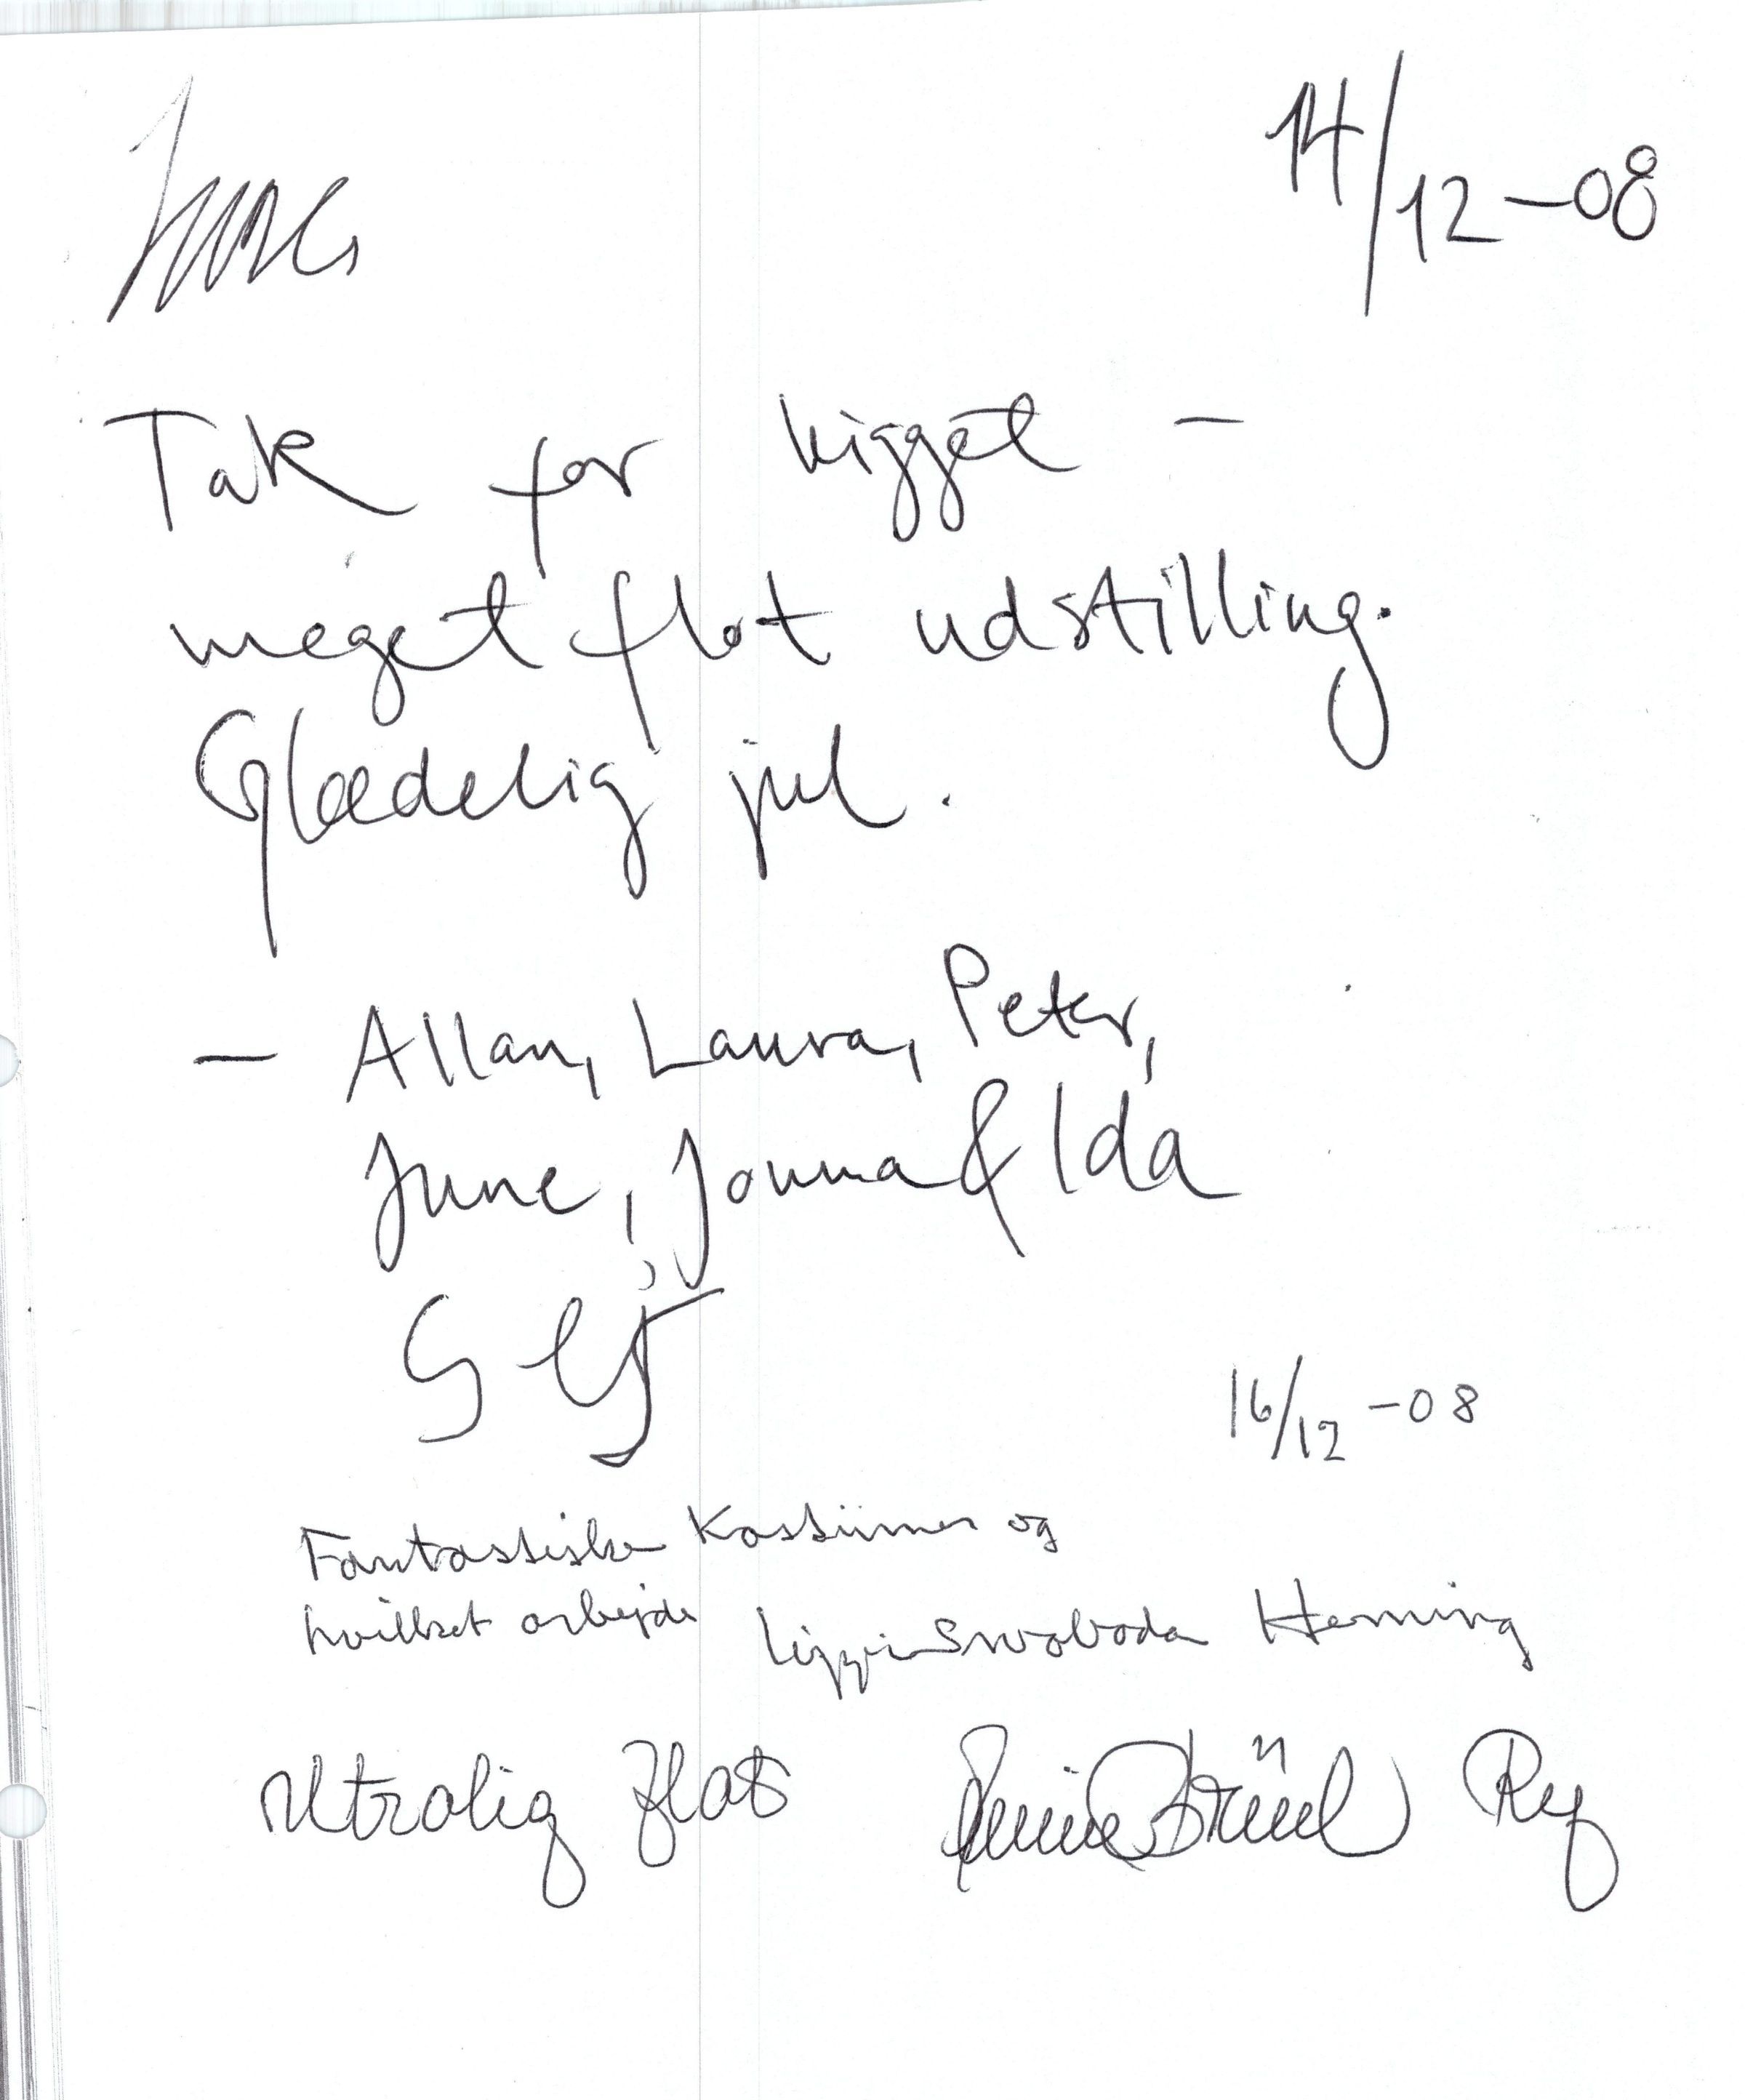 14/12-08
Tak for kigget -
meget flot udstilling.
Glædelig jul.
- Allan, Laura, Peter,
June, Jonna & Ida
16/12-08
Fantastiske Kostümer og
hvilket arbejde Lizzi Swoboda Herning
Utrolig flot